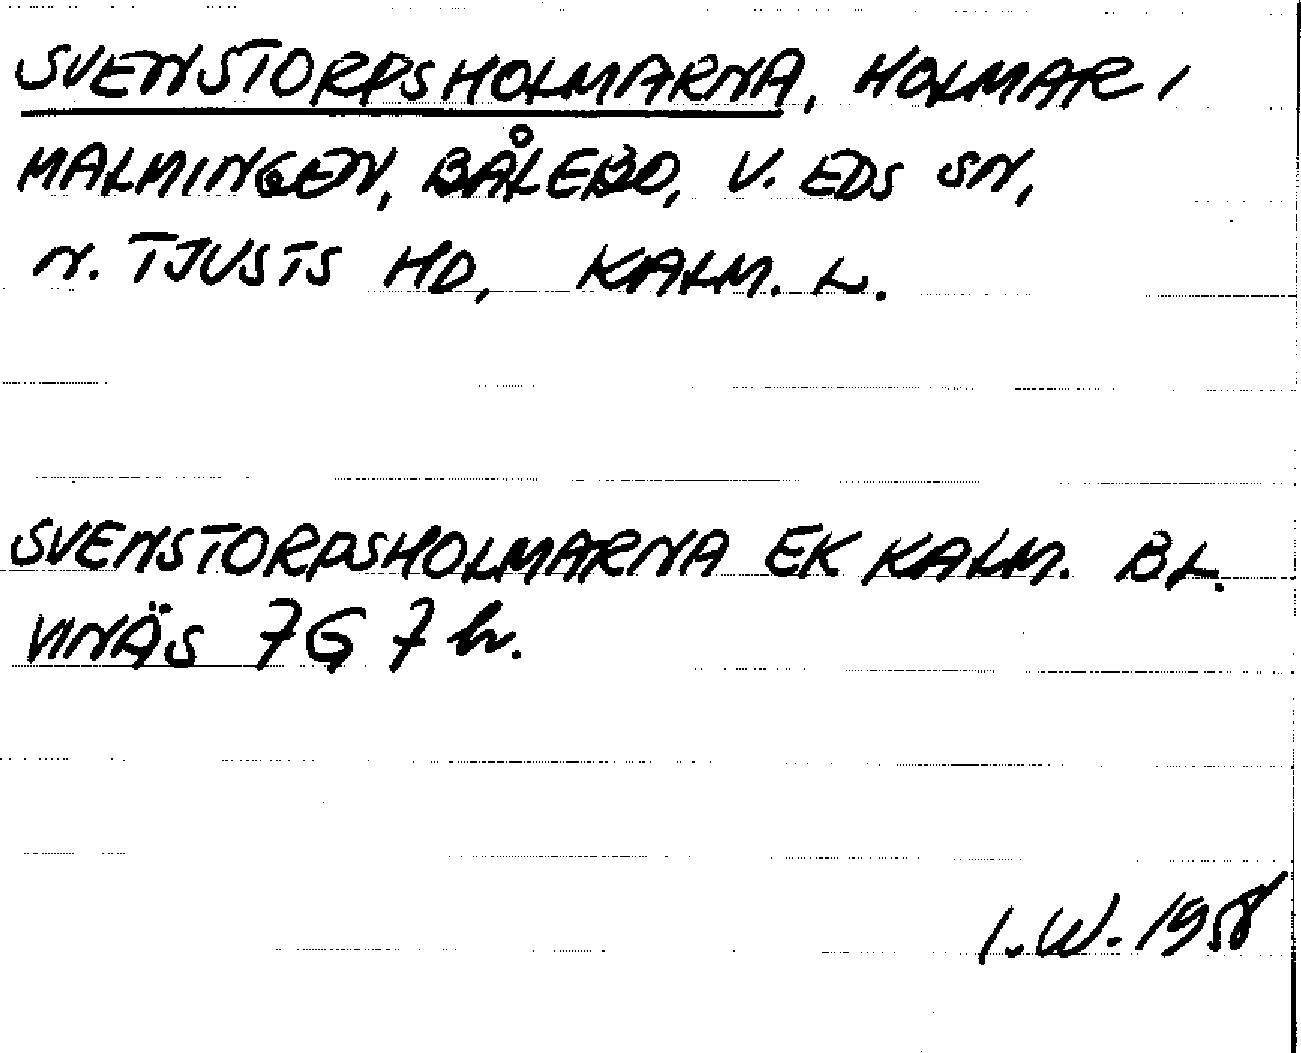 SVENSTORPSHOLMARNA, HOLMAR I
MALMINGEN, BÅLEBO, V. EDS SN,
N. TJUSTS HD, KALM. L.
SVENSTORPSHOLMARNA EK KALM. BL.
VINÄS 7G 7h.
I.W. 1958